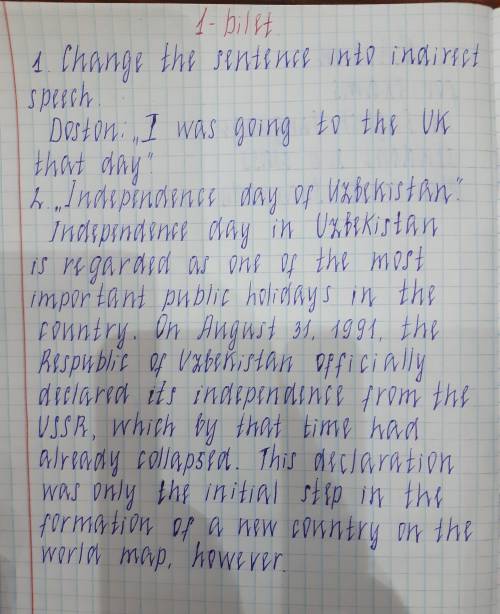 1-bilet
1. Change the sentence into indirect
speech.
Doston: „I was going to the UK
that day"
2. „Independence day of Uzbekistan".
Independence day in Uzbekistan
is regarded as one of the most
important public holidays in the
country. On August 31, 1991, the
Respublic of Uzbekistan officially
declared its independence from the
USSR, which by that time had
already collapsed. This declaration
was only the initial step in the
formation of a new country on the
world map, however.